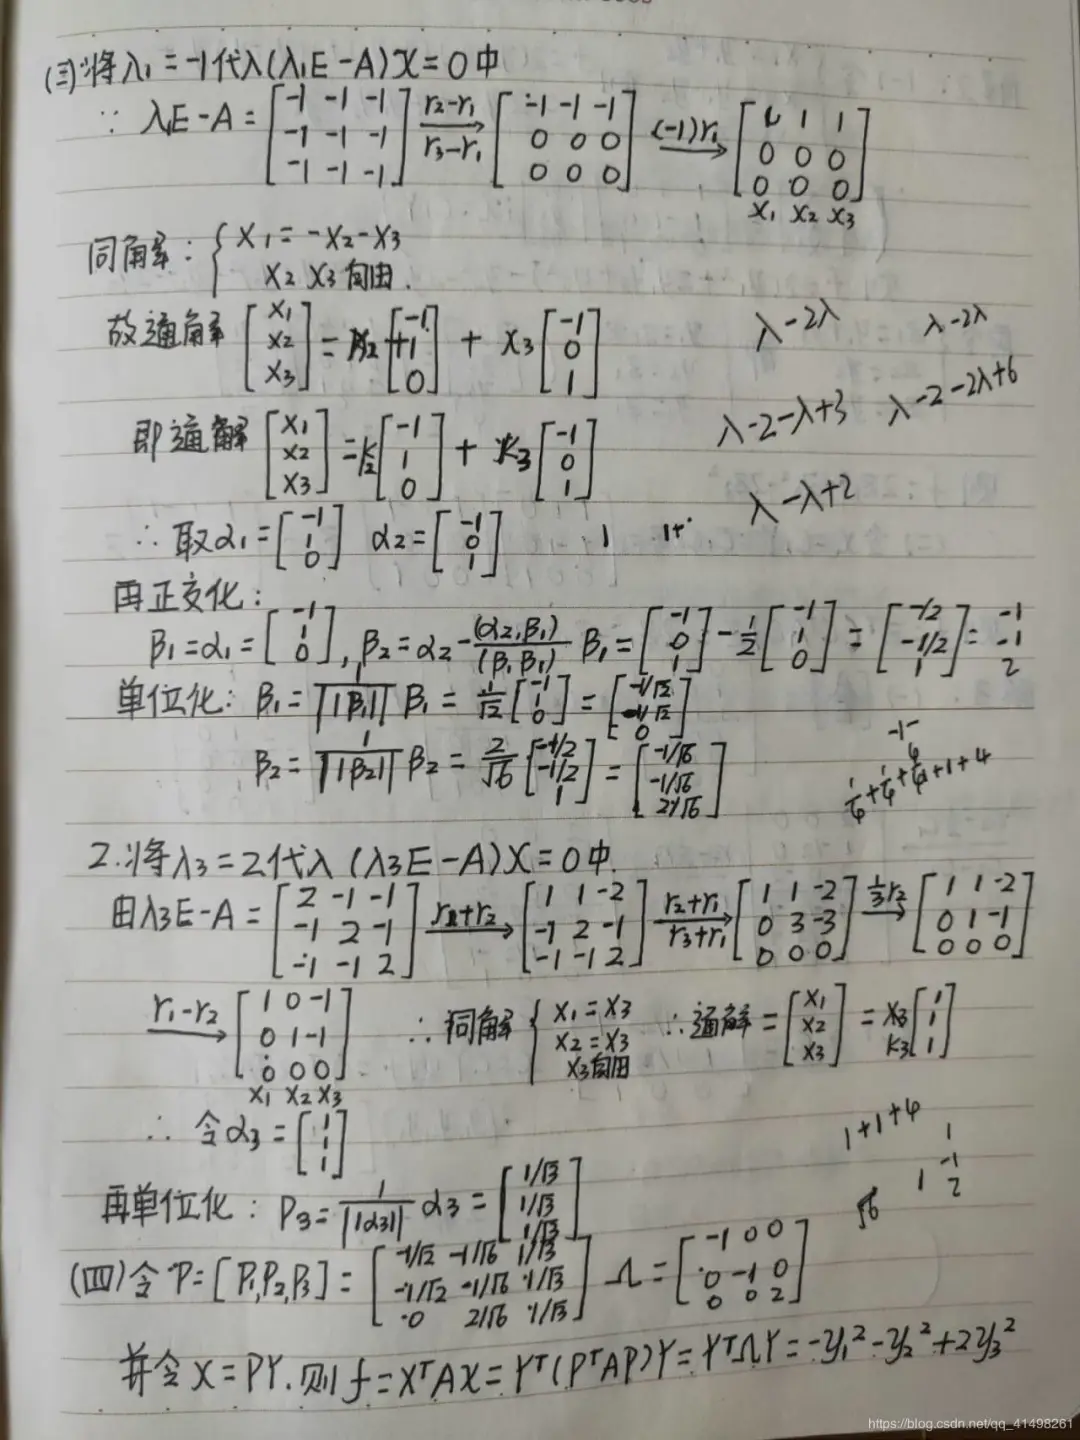 (三)将λ₁=-1代入(λ₁E-A)X=0中
∵ λ₁E-A=[-1 -1 -1; -1 -1 -1; -1 -1 -1] r₂-r₁ r₃-r₁ → [-1 -1 -1; 0 0 0; 0 0 0] (-1)r₁ → [1 1 1; 0 0 0; 0 0 0]
x₁ x₂ x₃
同解: { x₁=-x₂-x₃
x₂ x₃自由.
故通解 [x₁; x₂; x₃] = x₂[-1; +1; 0] + x₃[-1; 0; 1]
λ-2λ λ-2λ
即通解 [x₁; x₂; x₃] = k₂[-1; 1; 0] + k₃[-1; 0; 1]
λ-2-λ+3 λ-2-2λ+6
λ-λ+2
∴ 取α₁=[-1; 1; 0] α₂=[-1; 0; 1] 1 1+
再正交化:
β₁=α₁=[-1; 1; 0], β₂=α₂-(α₂,β₁)/(β₁,β₁) β₁=[-1; 0; 1]-1/2[-1; 1; 0]=[-1/2; -1/2; 1]= -1 -1 2
单位化: β₁=1/||β₁|| β₁=1/√2[-1; 1; 0]=[-1/√2; -1/√2; 0]
β₂=1/||β₂|| β₂=2/√6[-1/2; -1/2; 1]=[-1/√6; -1/√6; 2/√6]
2.将λ₃=2代入(λ₃E-A)X=0中.
由λ₃E-A=[2 -1 -1; -1 2 -1; -1 -1 2] → [1 1 -2; -1 2 -1; -1 -1 2] r₂+r₁ r₃+r₁ → [1 1 -2; 0 3 -3; 0 0 0] 1/3r₂ → [1 1 -2; 0 1 -1; 0 0 0]
r₁-r₂ → [1 0 -1; 0 1 -1; 0 0 0] ∴同解 { x₁=x₃ x₂=x₃ x₃自由 ∴通解=[x₁; x₂; x₃]=x₃ k₃[1; 1; 1]
x₁ x₂ x₃
∴ 令α₃=[1; 1; 1]
1+1+4
1 -1 1 2
√6
再单位化: P₃=1/||α₃|| α₃=[1/√3; 1/√3; 1/√3]
(四)令P=[P₁,P₂,P₃]=[-1/√2 -1/√6 1/√3; -1/√2 -1/√6 1/√3; 0 2/√6 1/√3] Λ=[-1 0 0; 0 -1 0; 0 0 2]
并令X=PY.则f=XᵀAX=Yᵀ(PᵀAP)Y=YᵀΛY=-y₁²-y₂²+2y₃²
https://blog.csdn.net/qq_41498261